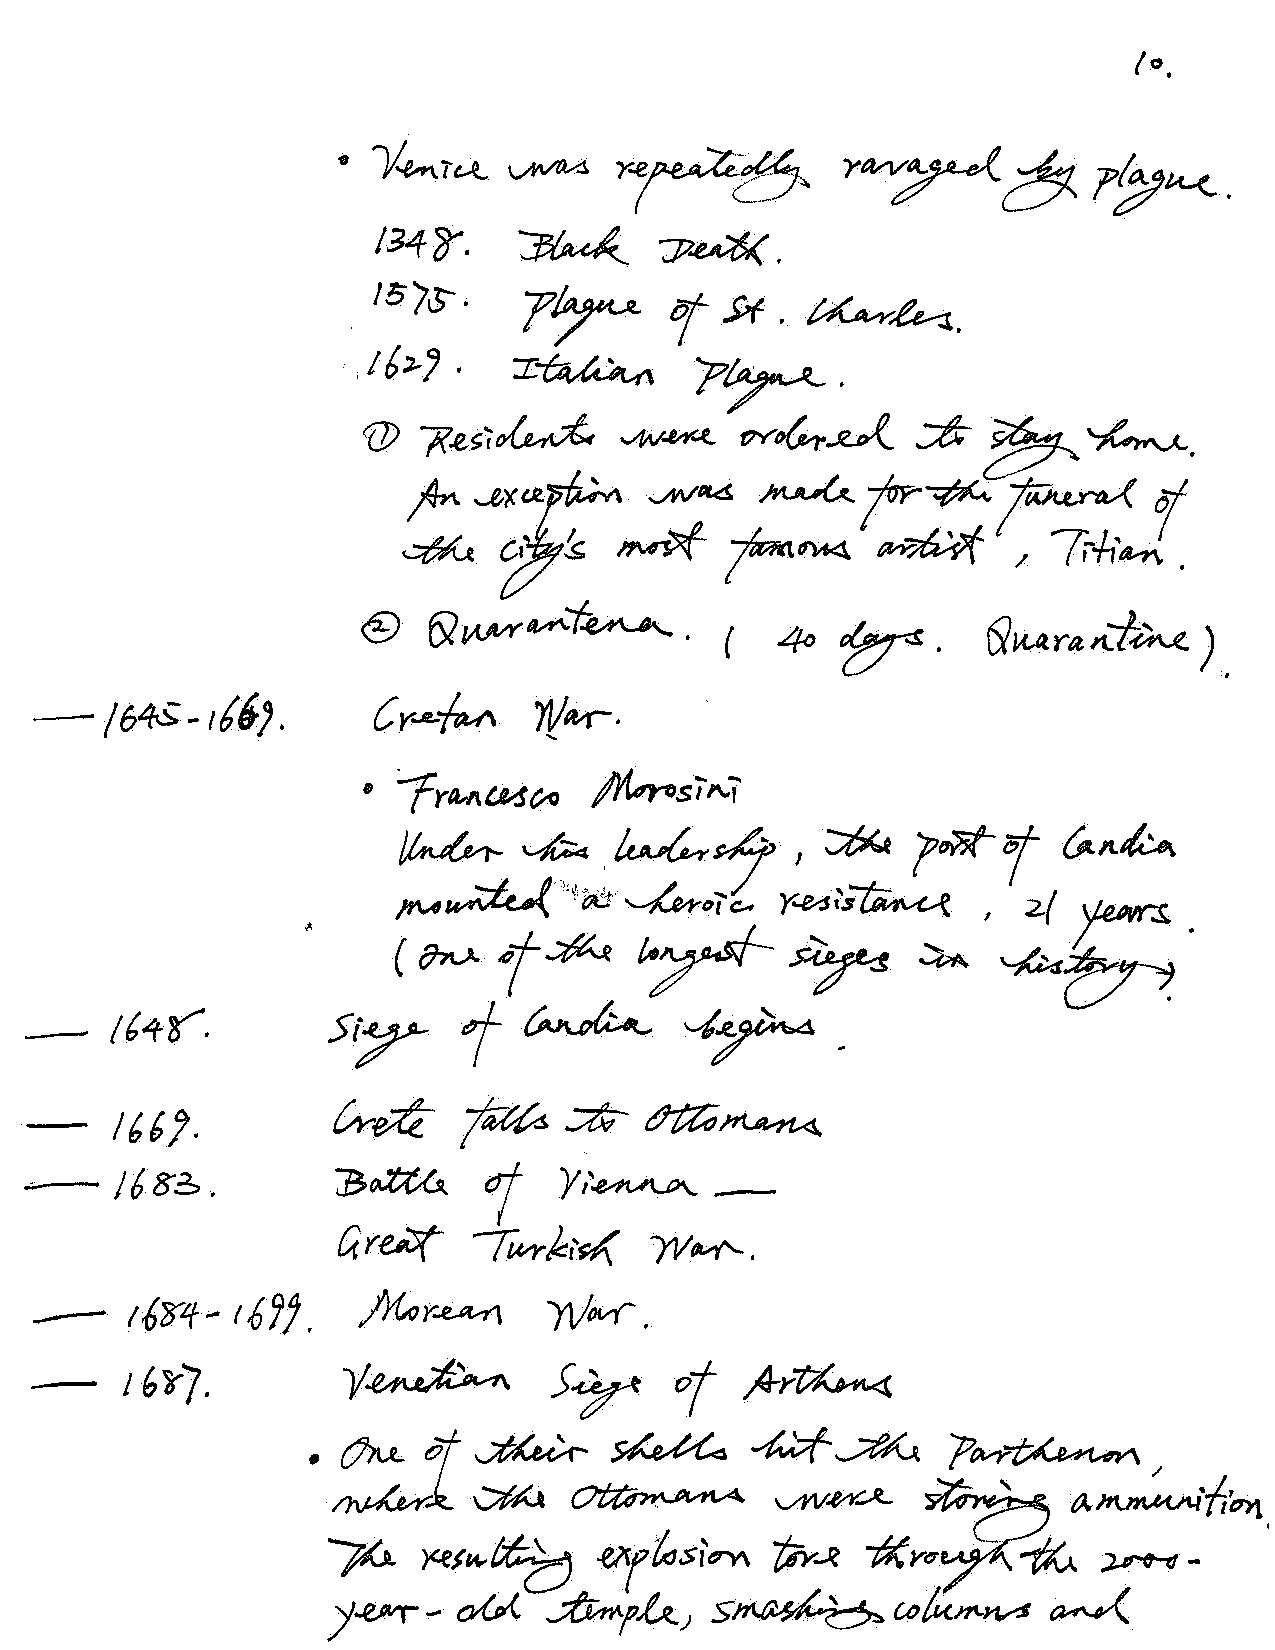 10.
• Venice was repeatedly ravaged by plague.
1348. Black Death.
1575. Plague of St. Charles.
1629. Italian Plague.
① Residents were ordered to stay home.
An exception was made for the funeral of
the city's most famous artist, Titian.
② Quarantena. ( 40 days. Quarantine).
— 1645-1669. Cretan War.
• Francesco Morosini
Under his leadership, the port of Candia
mounted a heroic resistance, 21 years.
(One of the longest sieges in history).
— 1648. Siege of Candia begins.
— 1669. Crete falls to Ottomans
— 1683. Battle of Vienna —
Great Turkish War.
— 1684-1699. Morean War.
— 1687. Venetian Siege of Arthens
• One of their shells hit the Parthenon,
where the Ottomans were storing ammunition.
The resulting explosion tore through the 2000-
year-old temple, smashing columns and